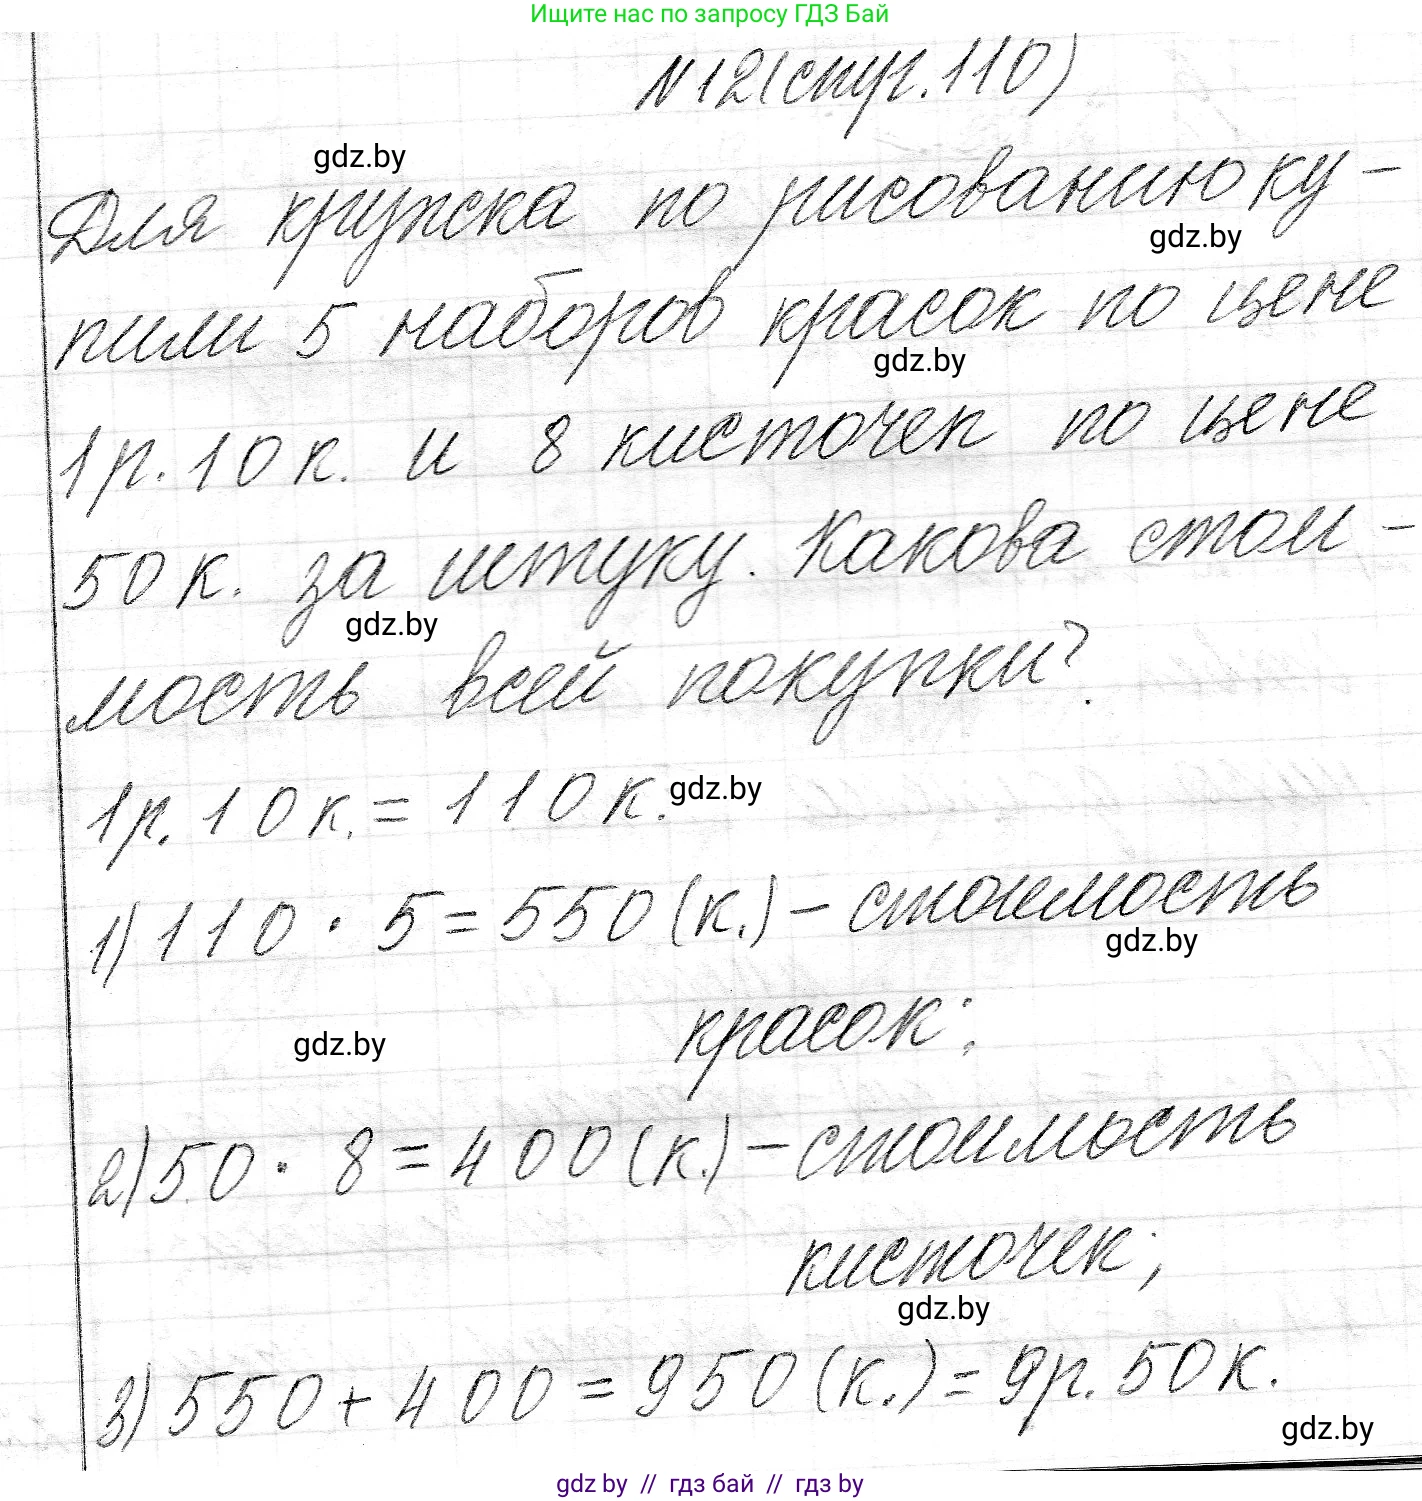 Ищите нас по запросу ГДЗ Бай
№12(стр.110)
gdz.by
Для кружка по рисованию ку-
gdz.by
пили 5 наборов красок по цене
gdz.by
1р.10к. и 8 кисточек по цене
50к. за штуку. Какова стои-
gdz.by
мость всей покупки?
1р.10к.=110к.
gdz.by
1)110·5=550(к.)-стоимость
gdz.by
красок;
gdz.by
2)50·8=400(к.)-стоимость
кисточек;
gdz.by
3)550+400=950(к.)=9р.50к.
gdz.by
gdz by // гдз бай // гдз by